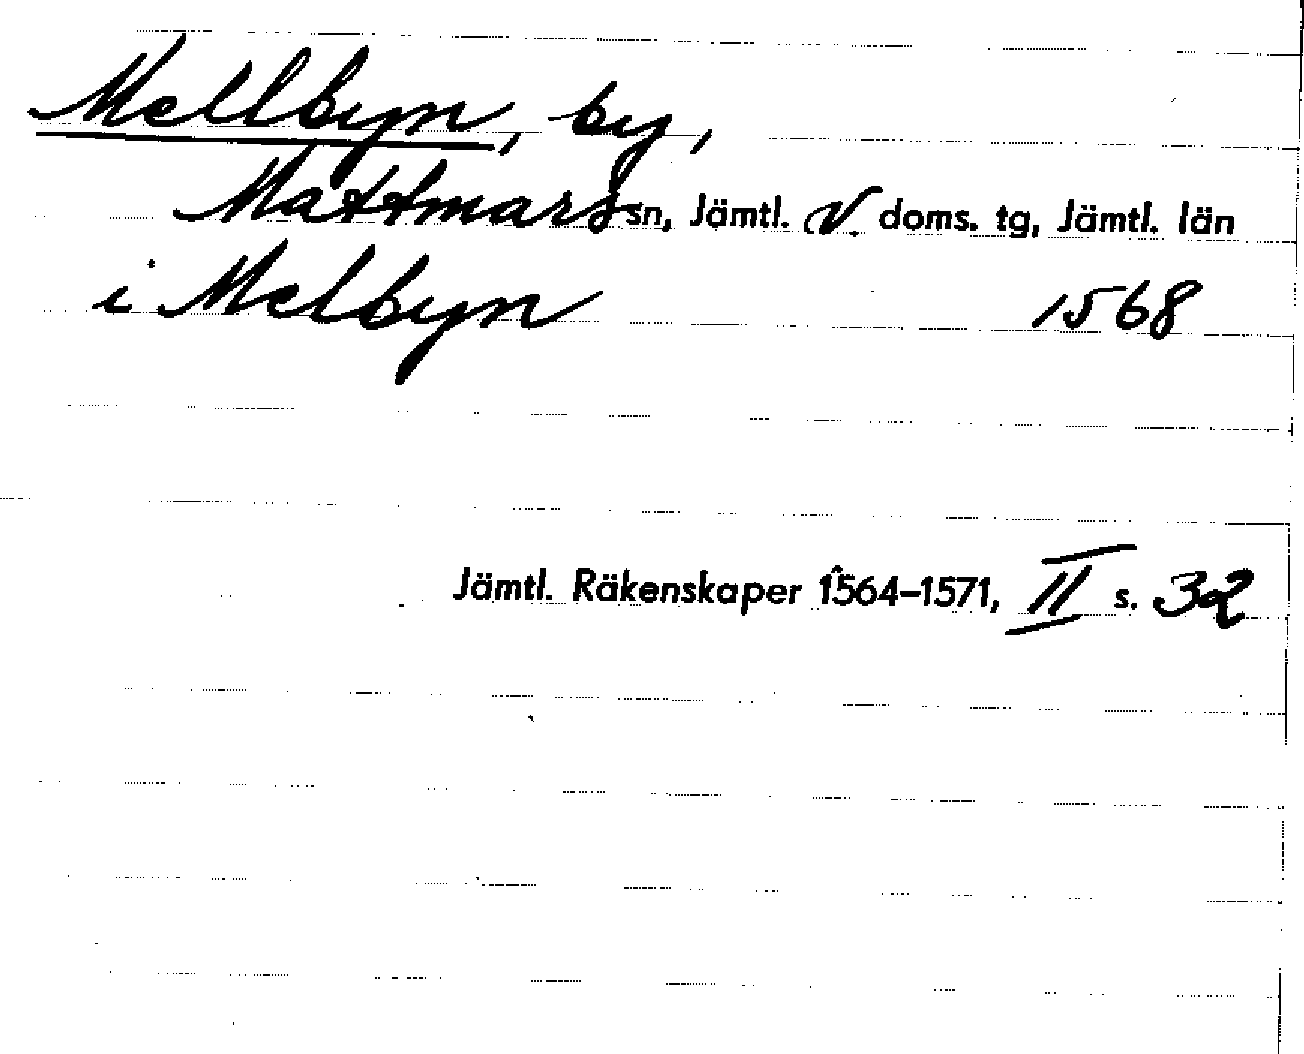 Mellbyn, by,
Mattmars sn, Jämtl. V. doms. tg, Jämtl. län
i Melbyn 1568
Jämtl. Räkenskaper 1564–1571, II s. 32